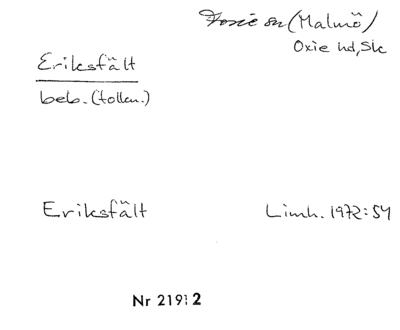 Foxie sn (Malmö)
Oxie hd, Sk
Eriksfält
beb. (tollkn.)
Eriksfält Limh. 1972:54
Nr 219: 2